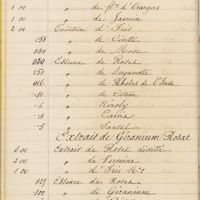 1 00 " de fl.rs d'Oranger
1 00 " de Jasmin
2 00 Teinture d'Iris
150 " de Civette
250 " de Musc
050 Essence de Roses
250 " de Bergamotte
" de l'Inde
10 " de Citron
5 " Néroly
5 "
5 " Santal
Extrait de Géranium Rosat
6 00 Extrait de Roses
2 00 " de Verveine
1 00 " d'Iris No 1
Essence de Roses
100 " de Géranium